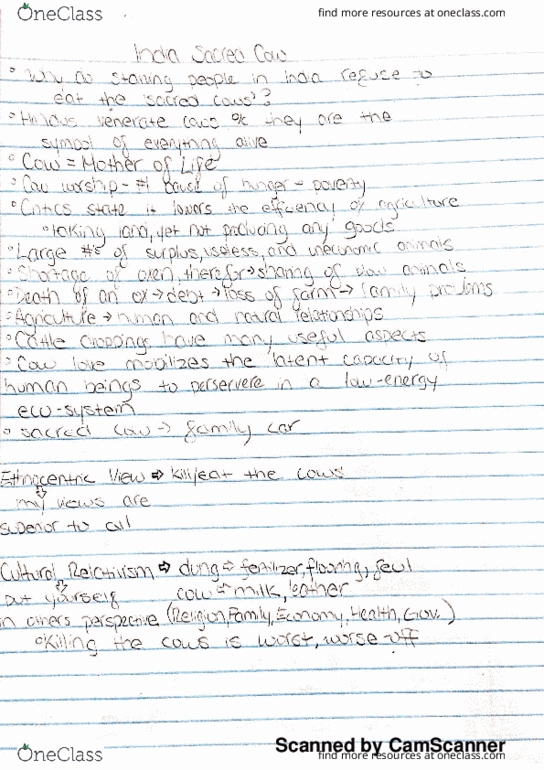 OneClass
find more resources at oneclass.com
India Sacred Cow
° Why do starving people in India refuse to
eat the "sacred cows"?
° Hindus venerate cows b/c they are the
symbol of everything alive
° Cow = Mother of Life
° Cow worship - #1 cause of hunger - poverty
° Critics state it lowers the efficiency of agriculture
° taking land, yet not producing any goods
° Large #'s of surplus, useless, and uneconomic animals
° Shortage of oxen, therefor → sharing of animals
° Death of an ox → debt → loss of farm → family problems
° Agriculture → human and natural relationships
° Cattle droppings have many useful aspects
° Cow love mobilizes the latent capacity of
human beings to perservere in a low-energy
eco-system
° sacred cow → family car
Ethnocentric View ⇒ kill/eat the cows
my views are
superior to all
Cultural Relativism ⇒ dung ⇒ fertilizer, flooring, feul
put yourself cow ⇒ milk, leather
in others perspective (Religion, Family, Economy, Health, Gov.)
° Killing the cows is worst, worse off
Scanned by CamScanner
OneClass
find more resources at oneclass.com